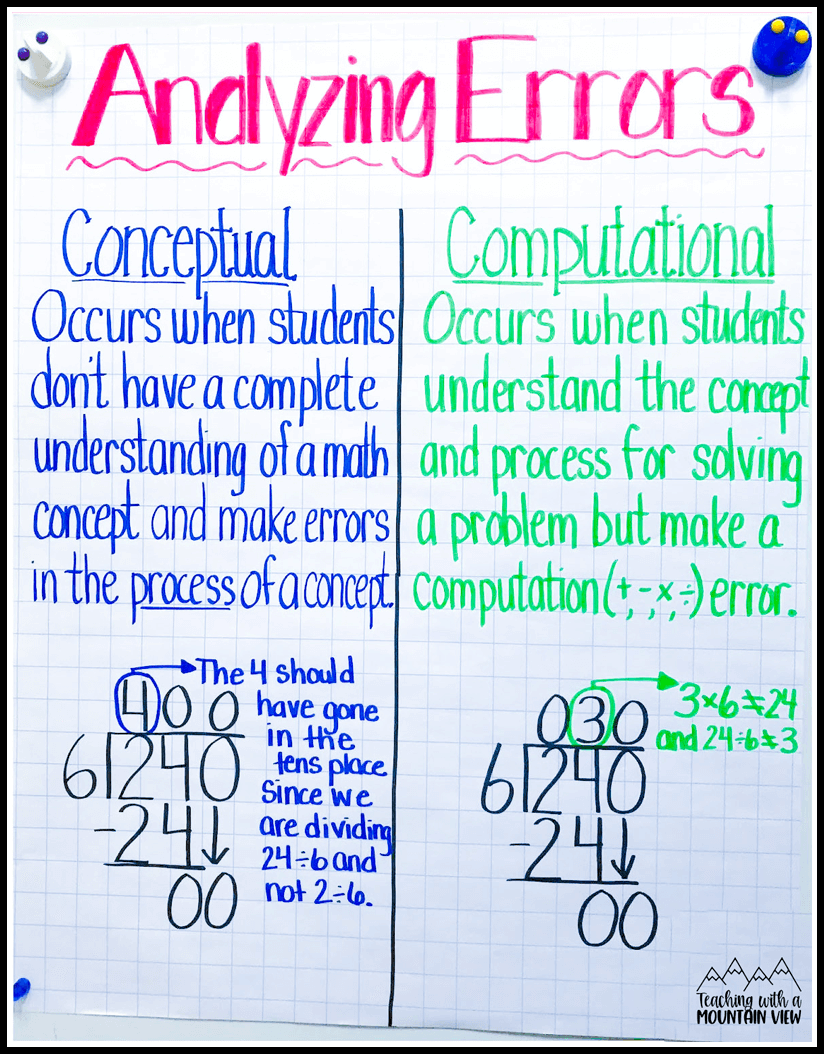 Analyzing Errors
Conceptual
Occurs when students
don't have a complete
understanding of a math
concept and make errors
in the process of a concept.
400
6240
-24↓
00
The 4 should
have gone
in the
tens place
since we
are dividing
24÷6 and
not 2÷6.
Computational
Occurs when students
understand the concept
and process for solving
a problem but make a
computation (+,-,×,÷) error.
030
6240
-24↓
00
3×6≠24
and 24÷6≠3
Teaching with a
MOUNTAIN VIEW